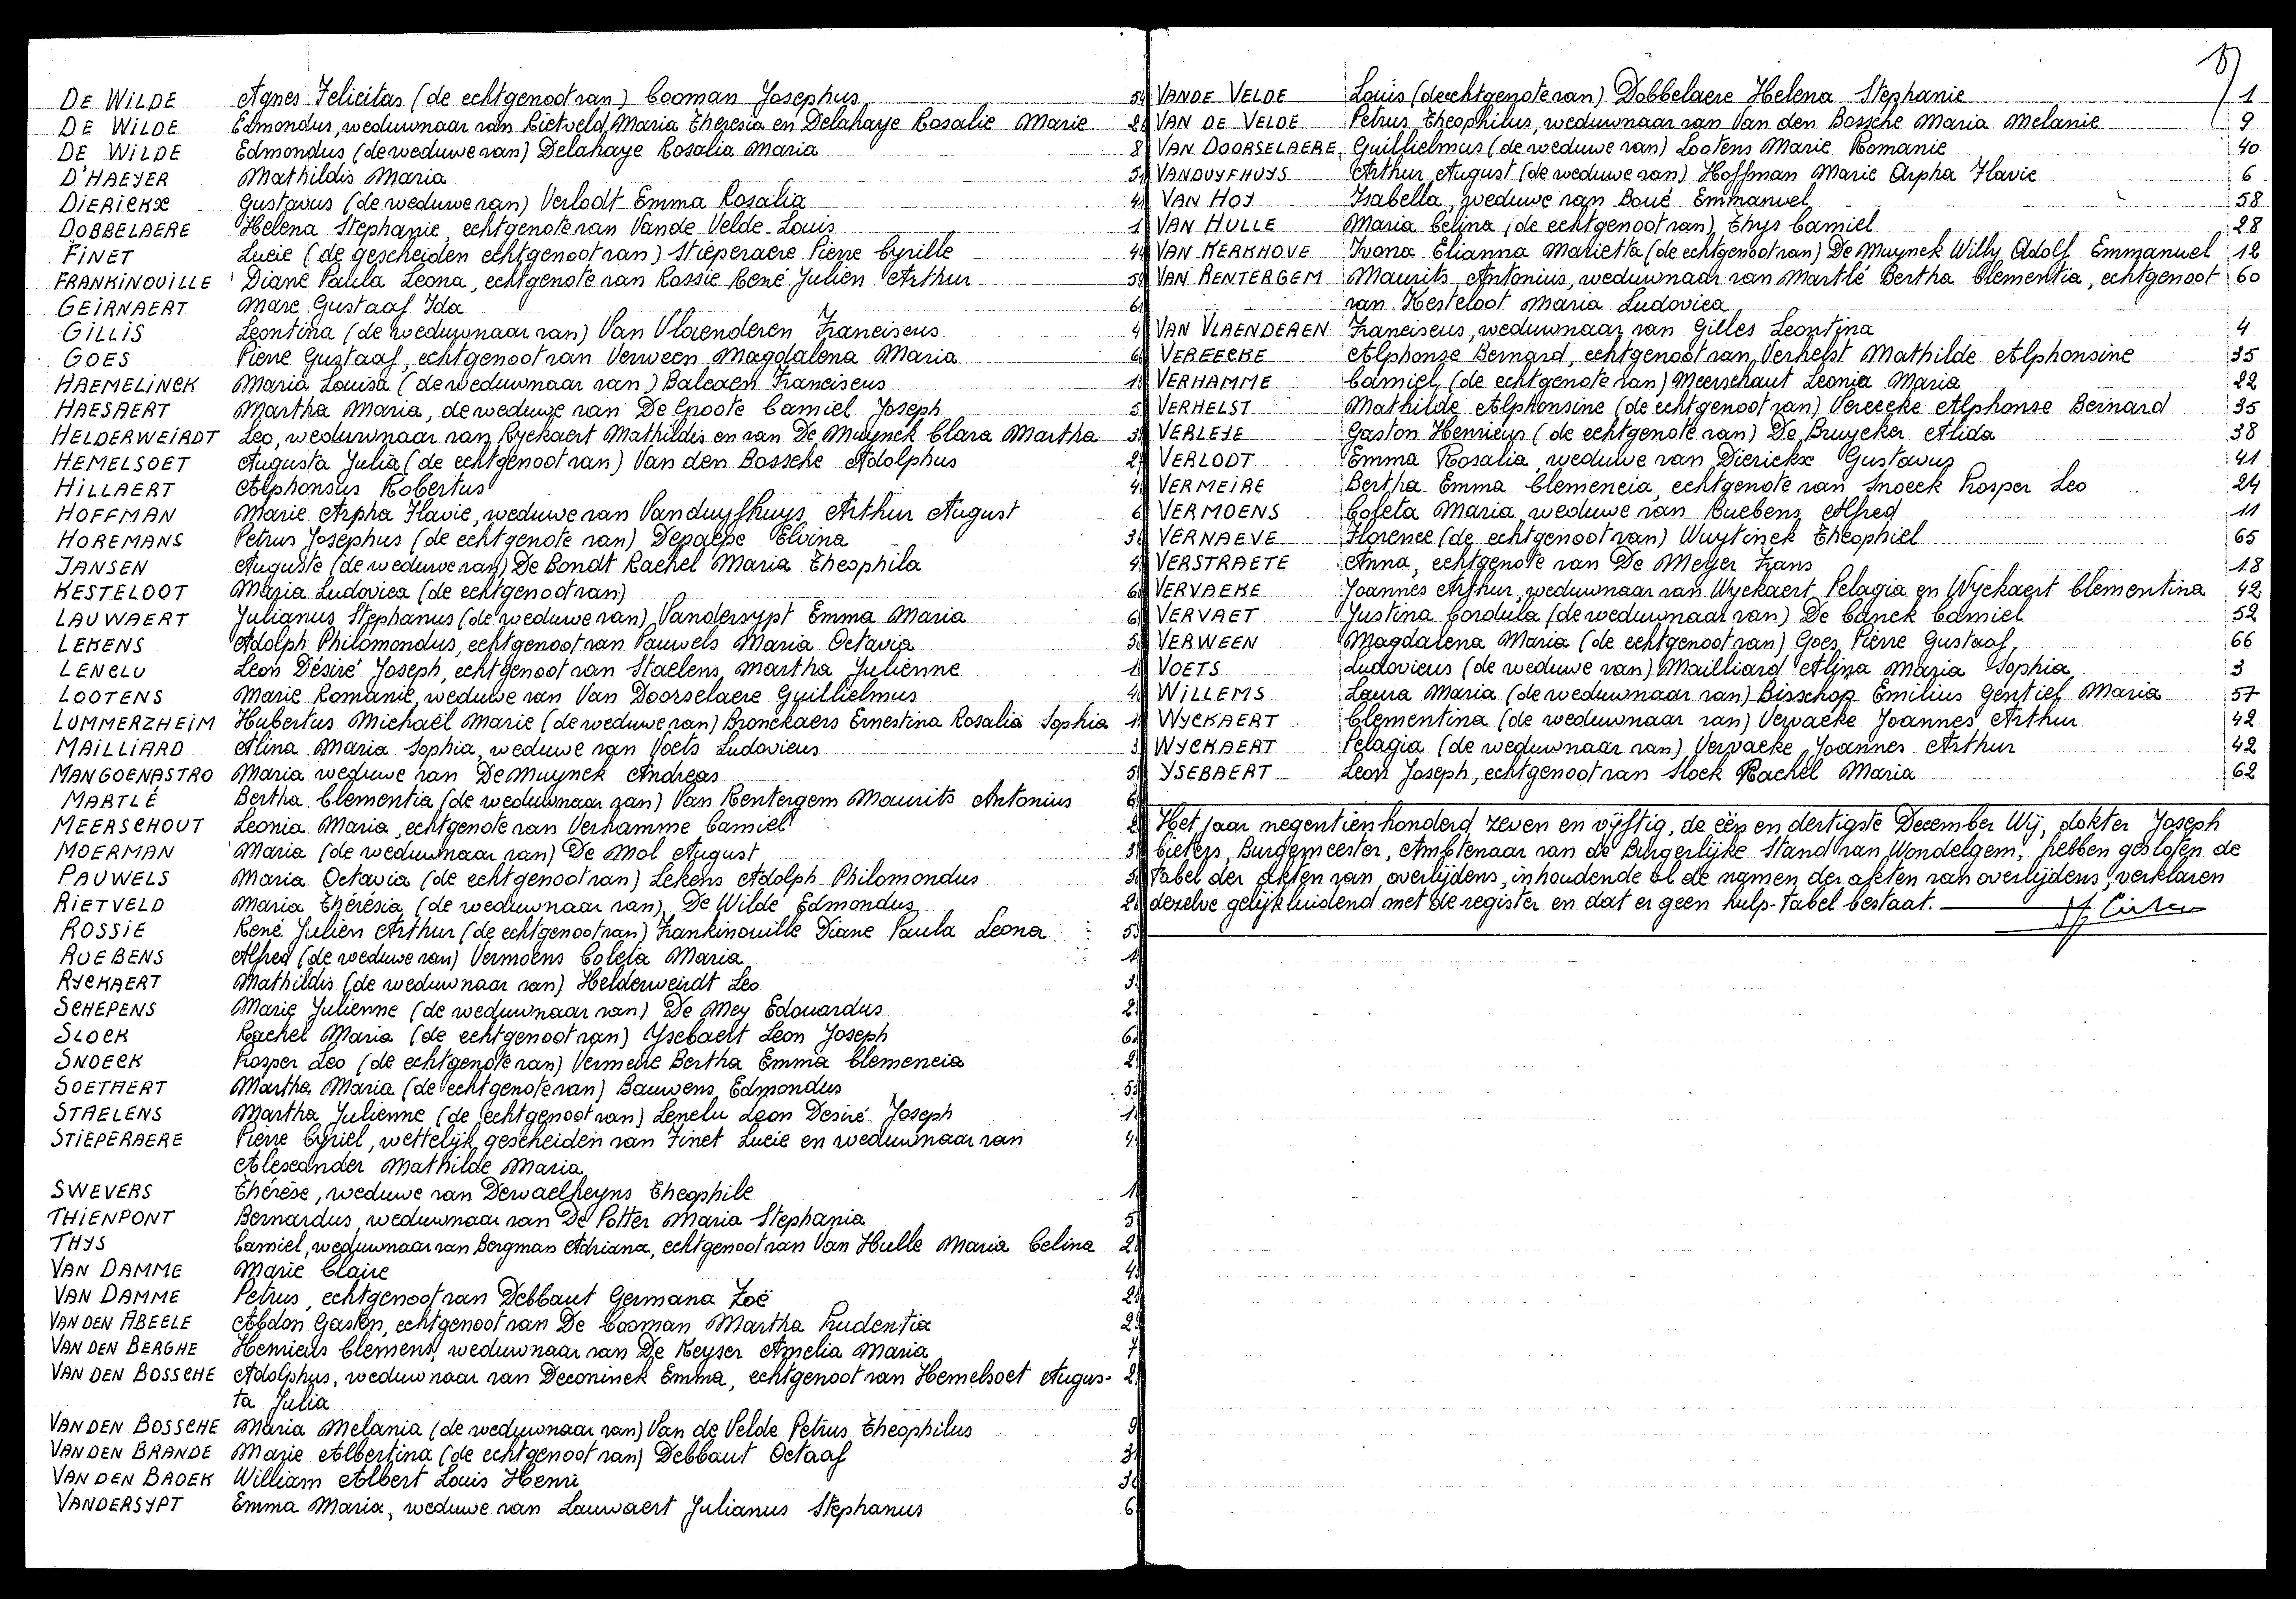 DE WILDE Agnes Felicitas (de echtgenoot van) Cooman Josephus 5
DE WILDE Edmondus, weduwnaar van Rietveld Maria Theresia en Delahaye Rosalie Marie 2
DE WILDE Edmondus (de weduwe van) Delahaye Rosalia Maria 8
D'HAEYER Mathildis Maria 5
DIERICKX Gustavus (de weduwe van) Verlodt Emma Rosalia 4
DOBBELAERE Helena Stephanie, echtgenote van Vande Velde Louis 1
FINET Lucie (de gescheiden echtgenoot van) Stieperaere Pierre Cyrille 4
FRANKINOUILLE Diane Paula Leona, echtgenote van Rossie René Julien Arthur 5
GEIRNAERT Marc Gustaaf Ida 6
GILLIS Leontina (de weduwnaar van) Van Vlaenderen Franciscus 4
GOES Pierre Gustaaf, echtgenoot van Verween Magdalena Maria 6
HAEMELINCK Maria Louisa (de weduwnaar van) Balcaen Franciscus 1
HAESAERT Martha Maria, de weduwe van De Groote Camiel Joseph 5
HELDERWEIRDT Leo, weduwnaar van Ryckaert Mathildis en van De Muynck Clara Martha 3
HEMELSOET Augusta Julia (de echtgenoot van) Van den Bossche Adolphus 2
HILLAERT Alphonsus Robertus 4
HOFFMAN Marie Arpha Flavie, weduwe van Vanduyfhuys Arthur August 6
HOREMANS Petrus Josephus (de echtgenote van) Depaepe Elvina 3
JANSEN Auguste (de weduwe van) De Bondt Rachel Maria Theophila 4
KESTELOOT Maria Ludovica (de echtgenoot van) 6
LAUWAERT Julianus Stephanus (de weduwe van) Vandersypt Emma Maria 6
LEKENS Adolph Philomondus, echtgenoot van Pauwels Maria Octavia 5
LENCLU Leon Désiré Joseph, echtgenoot van Staelens Martha Julienne 1
LOOTENS Marie Romanie, weduwe van Van Doorselaere Guillielmus 4
LUMMERZHEIM Hubertus Michaël Marie (de weduwe van) Bronckaers Ernestina Rosalia Sophia 1
MAILLIARD Alina Maria Sophia, weduwe van Voets Ludovicus 3
MANGOENASTRO Maria weduwe van De Muynck Andreas 5
MARTLÉ Bertha Clementia (de weduwnaar van) Van Rentergem Maurits Antonius 6
MEERSCHOUT Leonia Maria, echtgenote van Verhamme Camiel 2
MOERMAN Maria (de weduwnaar van) De Mol August 3
PAUWELS Maria Octavia (de echtgenoot van) Lekens Adolph Philomondus 5
RIETVELD Maria Thérésia (de weduwnaar van) De Wilde Edmondus 2
ROSSIE René Julien Arthur (de echtgenoot van) Frankinouille Diane Paula Leona 5
RUEBENS Alfred (de weduwe van) Vermoens Coleta Maria 1
RYCKAERT Mathildis (de weduwnaar van) Helderweirdt Leo 3
SCHEPENS Marie Julienne (de weduwnaar van) De Mey Edouardus 2
SLOCK Rachel Maria (de echtgenoot van) Ysebaert Leon Joseph 6
SNOECK Prosper Leo (de echtgenote van) Vermeire Bertha Emma Clemencia 2
SOETAERT Martha Maria (de echtgenote van) Bauwens Edmondus 5
STAELENS Martha Julienne (de echtgenoot van) Lenclu Léon Desiré Joseph 1
STIEPERAERE Pierre Cyriel, wettelijk gescheiden van Finet Lucie en weduwnaar van 4
Alexander Mathilde Maria
SWEVERS Thérèse, weduwe van Dewaelheyns Theophile 1
THIENPONT Bernardus, weduwnaar van De Potter Maria Stephania 5
THYS Camiel, weduwnaar van Bergman Adriana, echtgenoot van Van Hulle Maria Celina 2
VAN DAMME Marie Claire 4
VAN DAMME Petrus, echtgenoot van Debbaut Germana Zoë 2
VAN DEN ABEELE Abdon Gaston, echtgenoot van De Cooman Martha Prudentia 2
VAN DEN BERGHE Henricus Clemens, weduwnaar van De Keyser Amelia Maria 7
VAN DEN BOSSCHE Adolphus, weduwnaar van Deconinck Emma, echtgenoot van Hemelsoet Augus- 2
ta Julia
VAN DEN BOSSCHE Maria Melania (de weduwnaar van) Van de Velde Petrus Theophilus 9
VAN DEN BRANDE Marie Albertina (de echtgenoot van) Debbaut Octaaf 3
VAN DEN BROEK William Albert Louis Henri 3
VANDERSYPT Emma Maria, weduwe van Lauwaert Julianus Stephanus 6
VANDE VELDE Louis (de echtgenote van) Dobbelaere Helena Stephanie 1
VAN DE VELDE Petrus Theophilus, weduwnaar van Van den Bossche Maria Melanie 9
VAN DOORSELAERE Guillielmus (de weduwe van) Lootens Marie Romanie 40
VANDUYFHUYS Arthur August (de weduwe van) Hoffman Marie Arpha Flavie 6
VAN HOY Isabella, weduwe van Boué Emmanuel 58
VAN HULLE Maria Celina (de echtgenoot van) Thys Camiel 28
VAN KERKHOVE Ivona Elianna Marietta (de echtgenoot van) De Muynck Willy Adolf Emmanuel 12
VAN RENTERGEM Maurits Antonius, weduwnaar van Martlé Bertha Clementia, echtgenoot 60
van Kesteloot Maria Ludovica
VAN VLAENDEREN Franciscus, weduwnaar van Gilles Leontina 4
VEREECKE Alphonse Bernard, echtgenoot van Verhelst Mathilde Alphonsine 35
VERHAMME Camiel (de echtgenote van) Meerschaut Leonia Maria 22
VERHELST Mathilde Alphonsine (de echtgenoot van) Vereecke Alphonse Bernard 35
VERLEYE Gaston Henricus (de echtgenote van) De Bruycker Alida 38
VERLODT Emma Rosalia, weduwe van Dierickx Gustavus 41
VERMEIRE Bertha Emma Clemencia, echtgenote van Snoeck Prosper Leo 24
VERMOENS Coleta Maria, weduwe van Ruebens Alfred 11
VERNAEVE Florence (de echtgenoot van) Wuytinck Theophiel 65
VERSTRAETE Anna, echtgenote van De Meyer Frans 18
VERVAEKE Joannes Arthur, weduwnaar van Wyckaert Pelagia en Wyckaert Clementina 42
VERVAET Justina Cordula (de weduwnaar van) De Canck Camiel 52
VERWEEN Magdalena Maria (de echtgenoot van) Goes Pierre Gustaaf 66
VOETS Ludovicus (de weduwe van) Mailliard Alina Maria Sophia 3
WILLEMS Laura Maria (de weduwnaar van) Bisschop Emilius Gentiel Maria 57
WYCKAERT Clementina (de weduwnaar van) Vervaeke Joannes Arthur 42
WYCKAERT Pelagia (de weduwnaar van) Vervaeke Joannes Arthur 42
YSEBAERT Leon Joseph, echtgenoot van Slock Rachel Maria 62
Het jaar negentien honderd zeven en vijftig, de één en dertigste December Wij, dokter Joseph
Cieters, Burgemeester, Ambtenaar van de Burgerlijke Stand van Wondelgem, hebben gesloten de
tabel der akten van overlijdens, inhoudende al de namen der akten van overlijdens, verklaren
dezelve gelijkluidend met de register en dat er geen hulp-tabel bestaat.